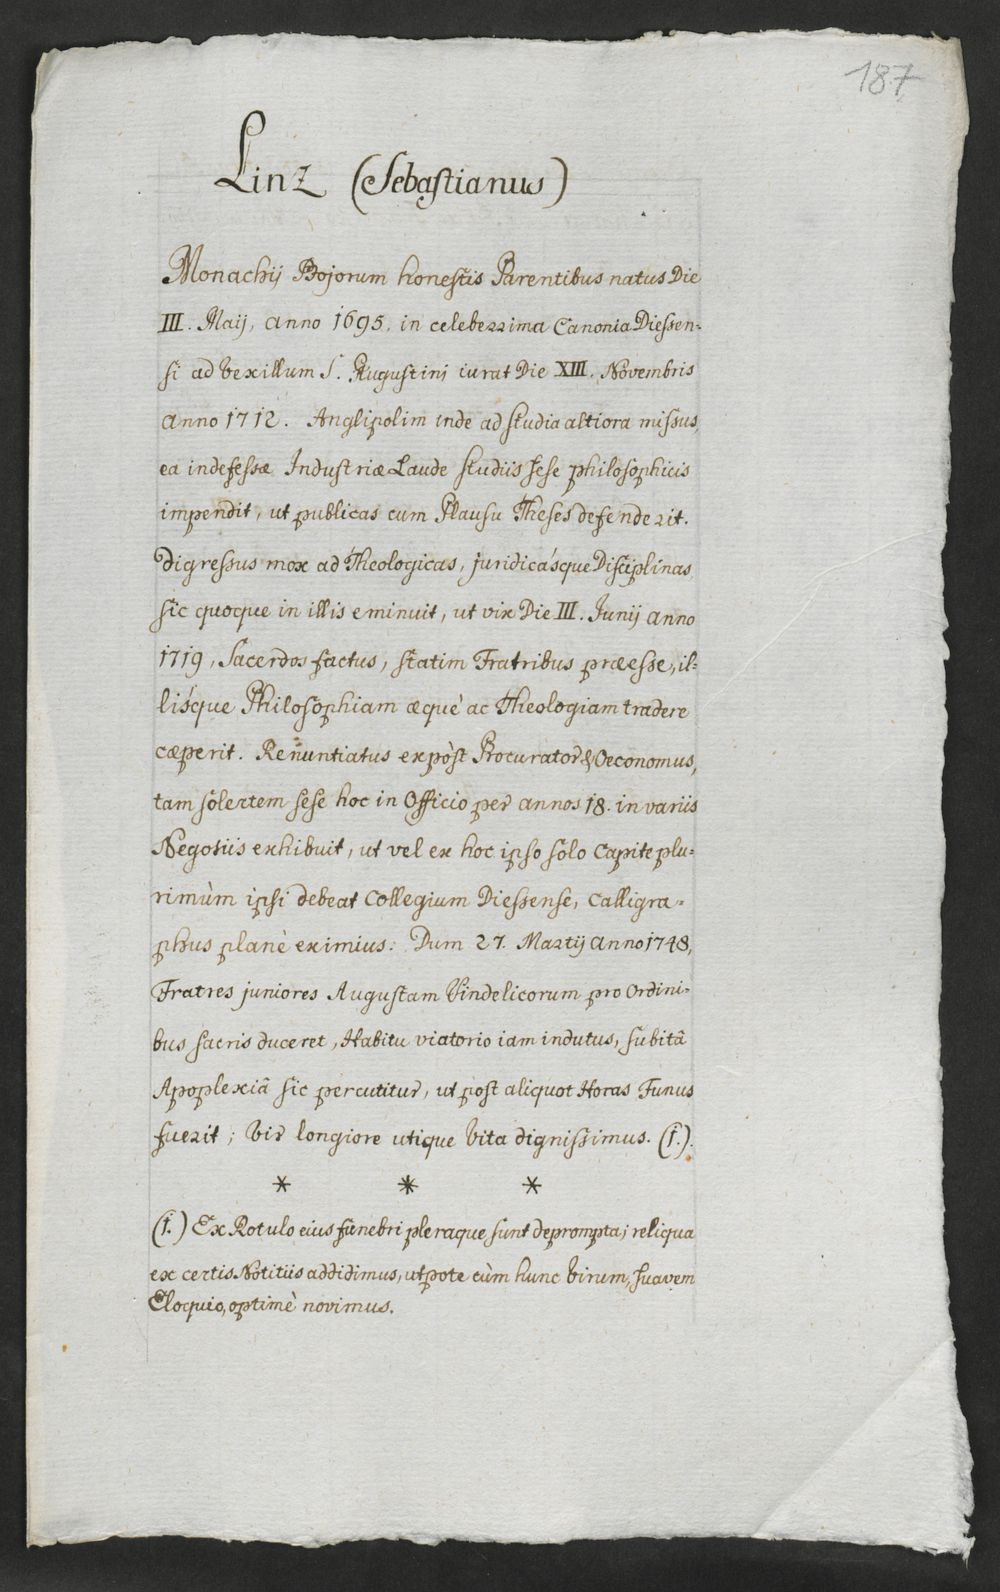 187
Linz (Sebastianus)
Monachij Bojorum honestis Parentibus natus Die
III. Maij, anno 1695, in celeberrima Canonia Diessen-
si ad vexillum S. Augustinj iurat Die XIII. Novembris
anno 1712. Anglipolim inde ad studia altiora missus,
ea indefessæ Industriæ Laude studiis sese philosophicis
impendit, ut publicas cum Plausu Theses defenderit.
Digressus mox ad Theologicas, juridicásque Disciplinas,
sic quoque in illis eminuit, ut vix Die III. Junij anno
1719, Sacerdos factus, statim Fratribus præesse, il-
lísque Philosophiam æquè ac Theologiam tradere
cæperit. Renuntiatus expòst Procurator & Oeconomus,
tam solertem sese hoc in Officio per annos 18. in variis
Negotiis exhibuit, ut vel ex hoc ipso solo Capite plu-
rimùm ipsi debeat Collegium Diessense, Calligra-
phus planè eximius: Dum 27. Martij anno 1748,
Fratres juniores Augustam Vindelicorum pro Ordini-
bus sacris duceret, Habitu viatorio iam indutus, subitâ
Apoplexiâ sic percutitur, ut post aliquot Horas Funus
fuerit; Vir longiore utique Vita dignissimus. (1.).
* * *
(1.) Ex Rotulo eius funebri pleraque sunt deprompta; reliqua
ex certis Notitiis addidimus, utpote cùm hunc Virum, suavem
Eloquio, optimè novimus.